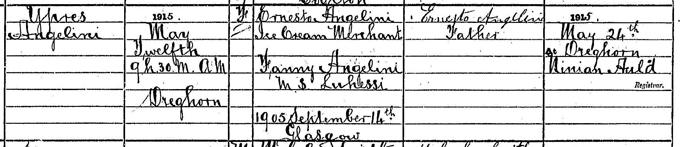 Ypres
Angelini
1915.
May
Twelfth
9 h. 30 m. A M
Dreghorn
F
Ernesto Angelini
Ice Cream Merchant
Fanny Angelini
M.S. Luhessi
1905 September 14th
Glasgow
Ernesto Angelini
Father
1915.
May 24th
at Dreghorn
Ninian Auld
Registrar.